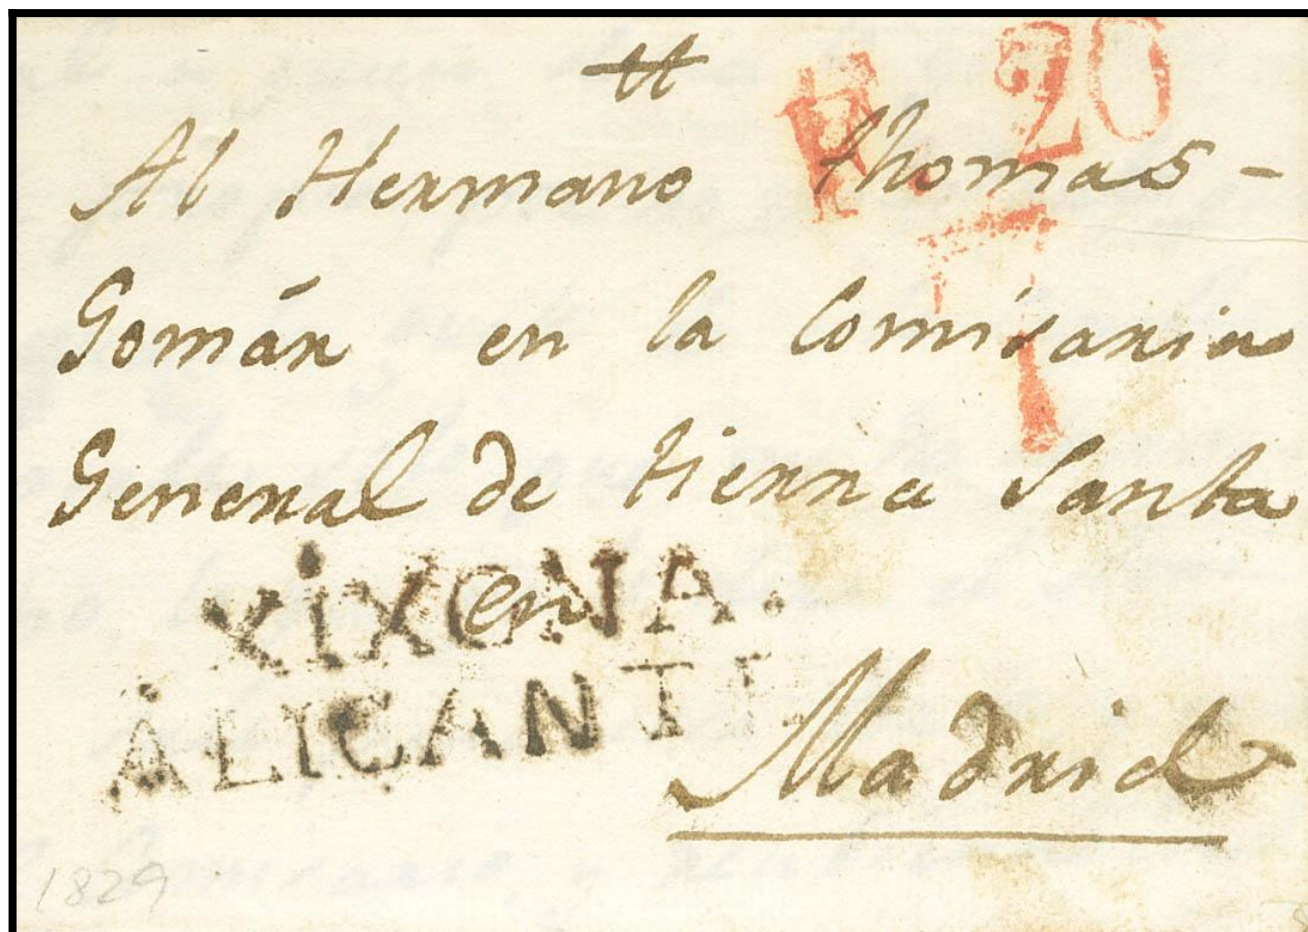 R. 20
Al Hermano thomas -
Gomán en la Comisaria
General de tierra Santa
en
XIXONA.
ALICANTE.
Madrid
1829